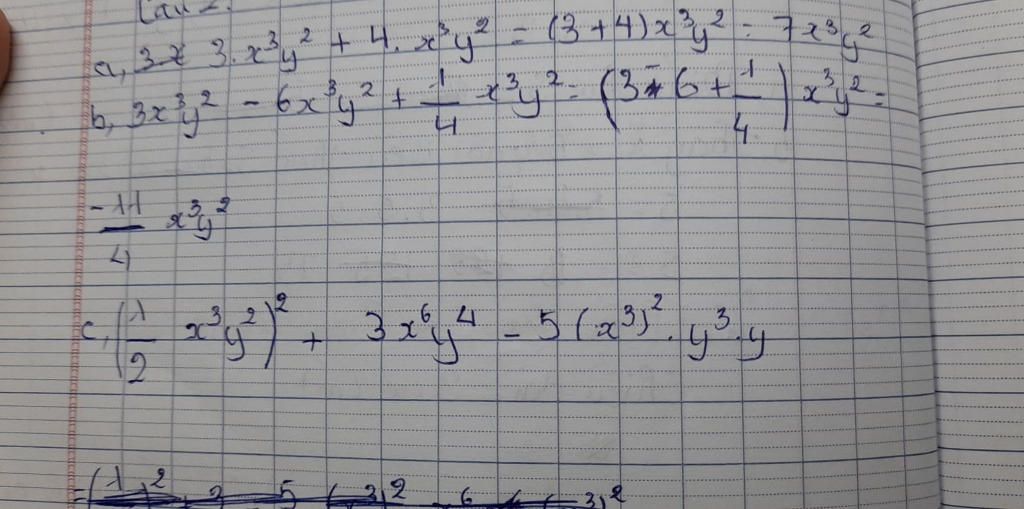 Câu 2.
a, 3x 3.x³y² + 4.x³y² = (3+4)x³y² = 7x³y²
b, 3x³y² - 6x³y² + 1/4 x³y² = (3 - 6 + 1/4) x³y² =
-11/4 x³y²
c, (1/2 x³y²)² + 3x⁶y⁴ - 5(x³)².y³.y